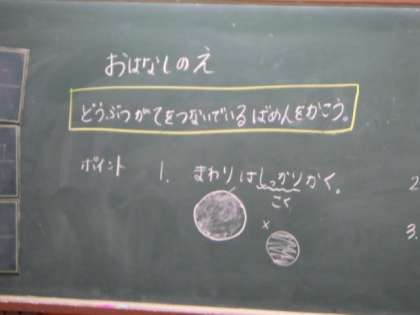 おはなしのえ
どうぶつがてをつないでいるばめんをかこう。
ポイント 1. まわりはしっかりかく。
こく
×
2
3.